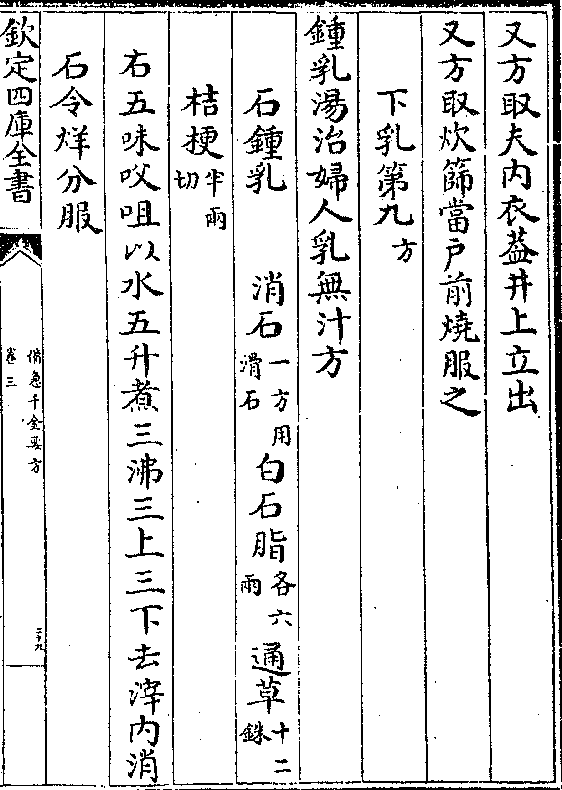 又方取夫内衣葢井上立出
又方取炊篩當戸前燒服之
下乳第九方
鍾乳湯治婦人乳無汁方
石鍾乳 消石一方用滑石 白石脂各六兩 通草十二銖
桔梗半兩切
右五味㕮咀以水五升煮三沸三上三下去滓内消
石令烊分服
欽定四庫全書
備急千金要方
卷三